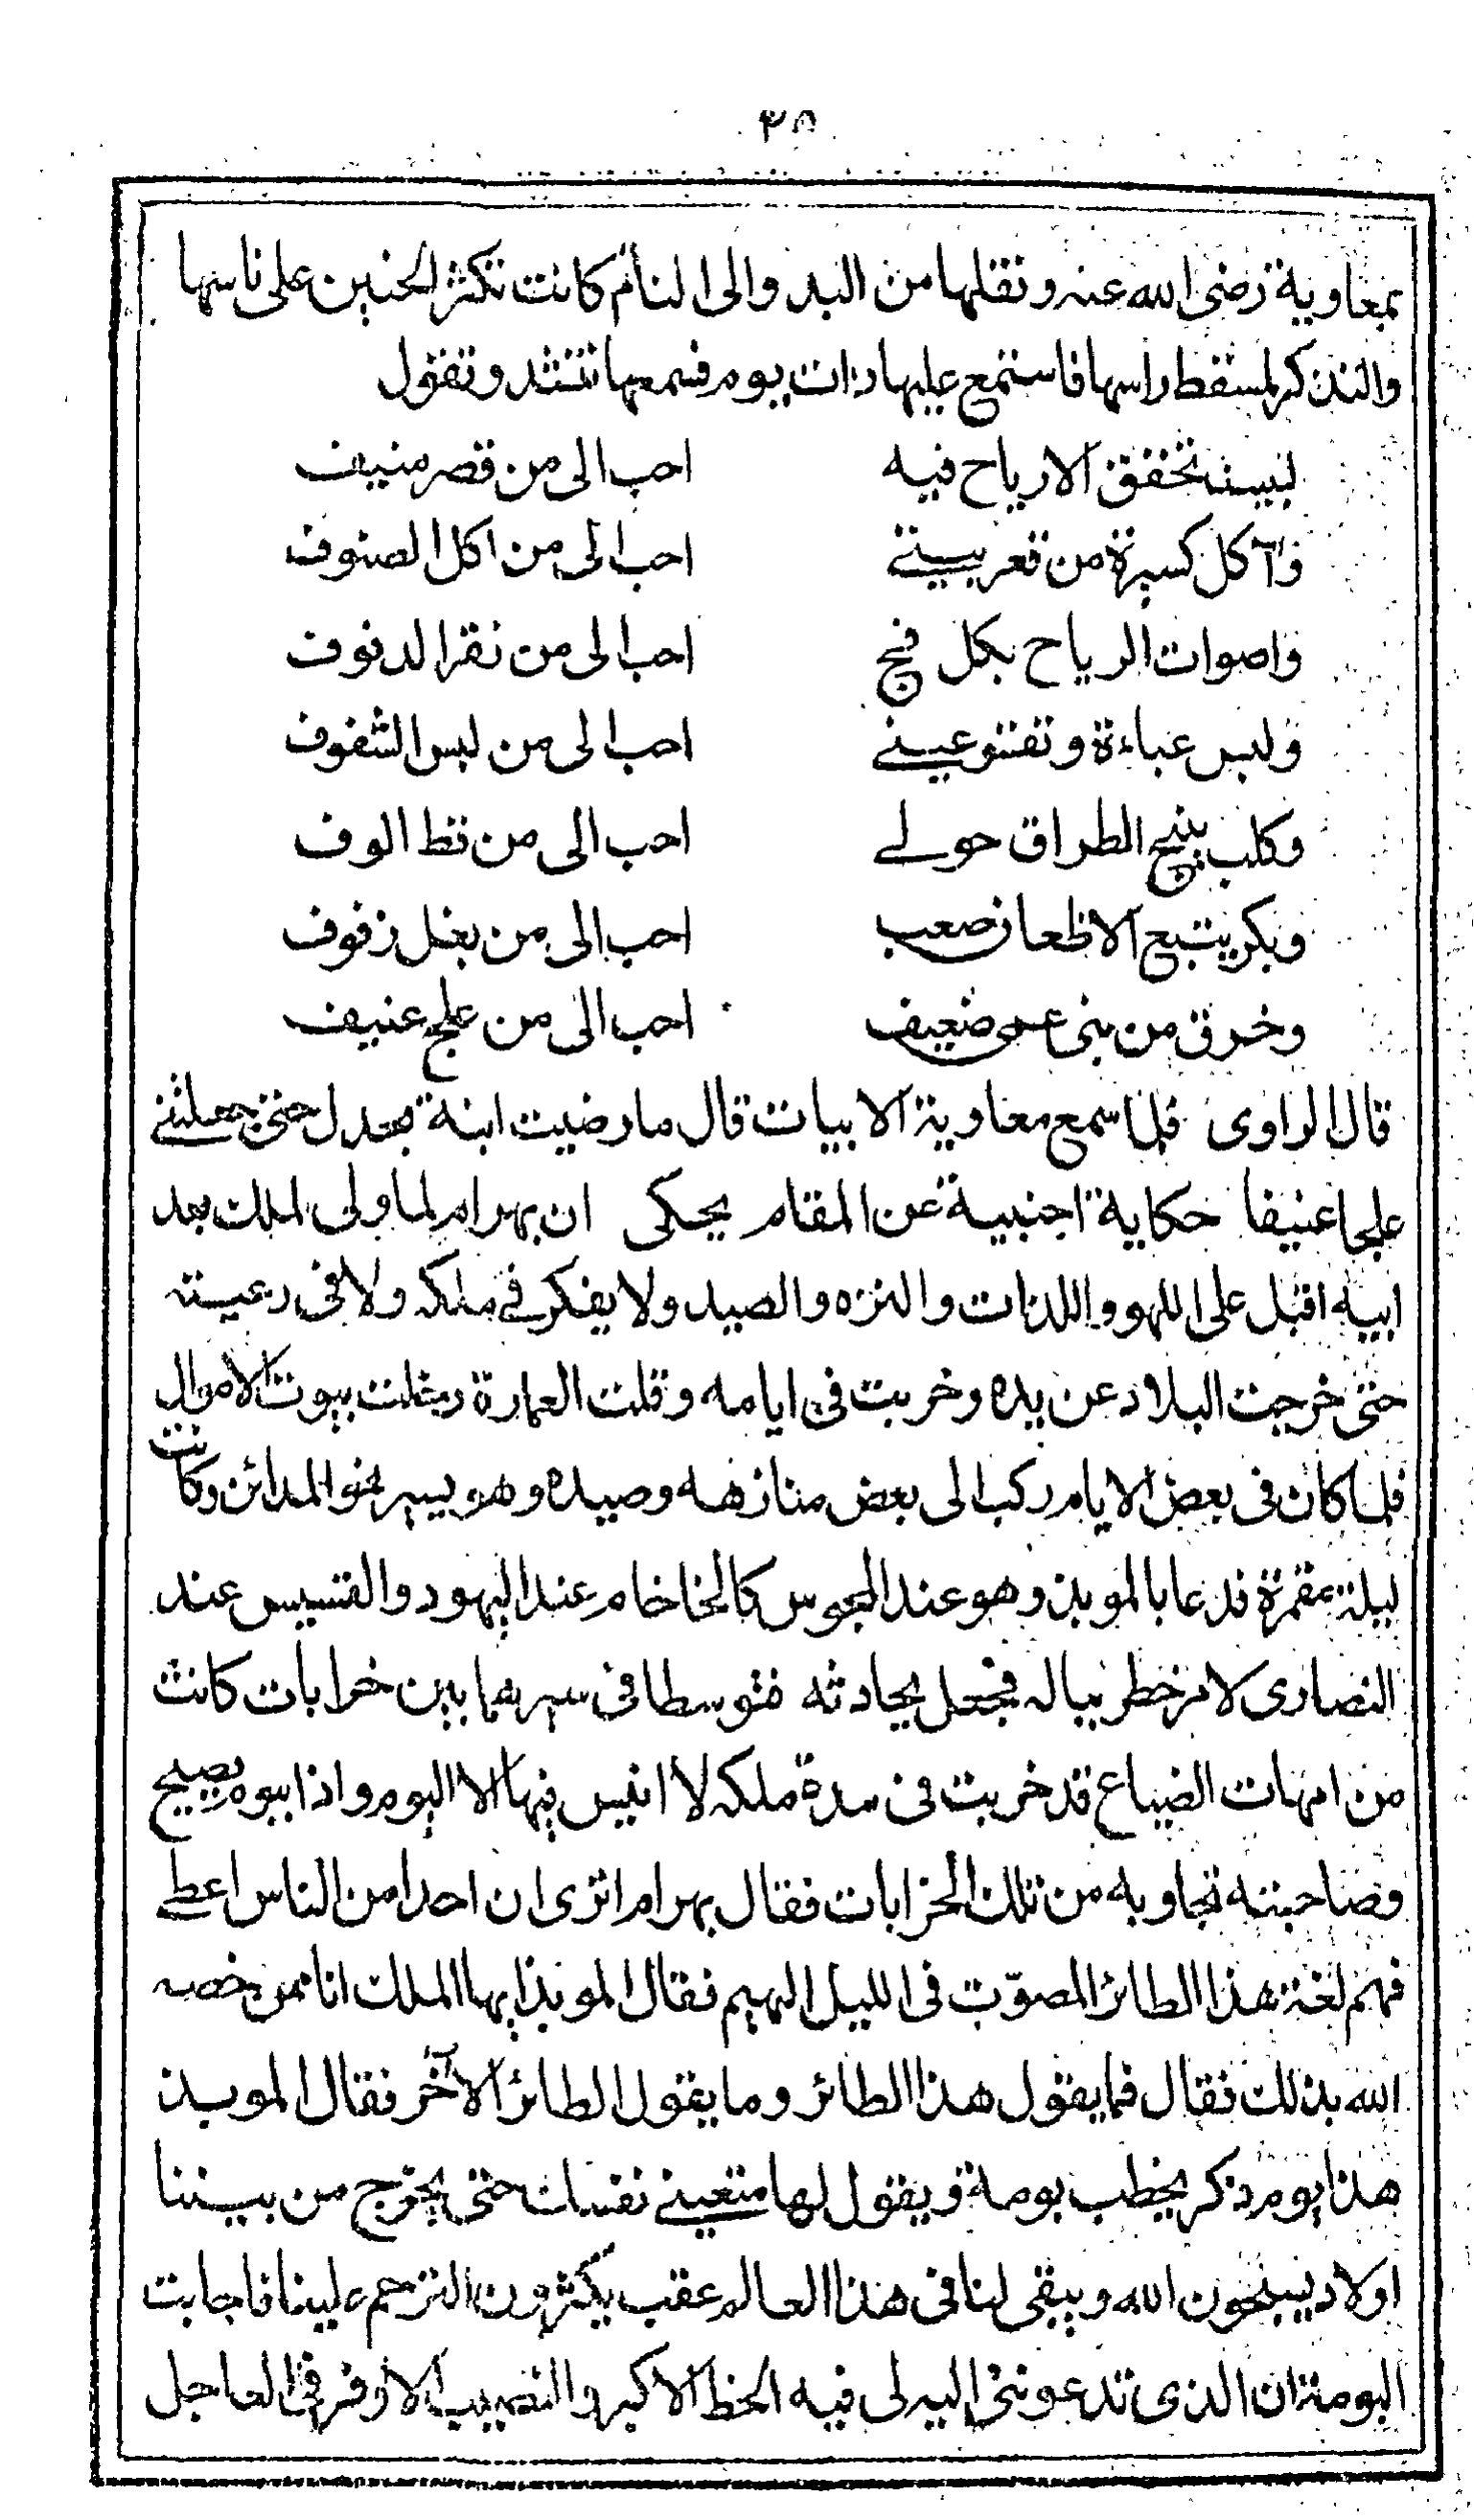 ٣٥
بمعاوية رضى الله عنه ونقلها من البدو الى الشأم كانت تكثر الحنين على ناسها
والتذكر لمسقط راسها فاستمع عليها ذات يوم فسمعها تنشد وتقول
لبيت تخفق الارياح فيه احب الى من قصر منيف
وآكل كسيرة من قعر بيتي احب الى من اكل الصنوف
واصوات الرياح بكل فج احب الى من نقر الدفوف
ولبس عباءة وتقتر عيني احب الى من لبس الشفوف
وكلب ينبح الطراق حولے احب الى من قط الوف
وبكر يتبع الاظعان صعب احب الى من بغل زفوف
وخرق من بنى عمى ضعيف احب الى من علج عنيف
قال الراوى فلما سمع معاوية الابيات قال ما رضيت ابنة بحدل حتى جعلتني
علجا عنيفا حكاية اجنبية عن المقام يحكى ان بهرام لما ولى الملك بعد
ابيه اقبل على اللهو واللذات والنزه والصيد ولا يفكر في ملكه ولا فى رعيته
حتى خرجت البلاد عن يده وخربت فى ايامه وقلت العمارة وخلت بيوت الاموال
فلما كان فى بعض الايام ركب الى بعض منازهه وصيده وهو يسير نحو المدائن وكانت
ليلة مقمرة فدعا بالموبذ وهو عند المجوس كالخاخام عند اليهود والقسيس عند
النصارى لامر خطر بباله فجعل يحادثه فتوسطا فى سيرهما بين خرابات كانت
من امهات الضياع قد خربت فى مدة ملكه لا انيس فيها الا البوم واذا ببوم يصيح
وصاحبته تجاوبه من تلك الخرابات فقال بهرام اترى ان احدا من الناس اعطے
فهم لغة هذا الطائر المصوّت فى الليل البهيم فقال الموبذ ايها الملك انا ممن خصه
الله بذلك فقال فما يقول هذا الطائر وما يقول الطائر الآخر فقال الموبذ
هذا بوم ذكر يخطب بومة ويقول لها متعيني نفسك حتى يخرج من بيننا
اولاد يسبحون الله ويبقى لنا فى هذا العالم عقب يكثرون الترحم علينا فاجابت
البومة ان الذى تدعونى اليه لى فيه الحظ الاكبر والنصيب الاوفر فى العاجل